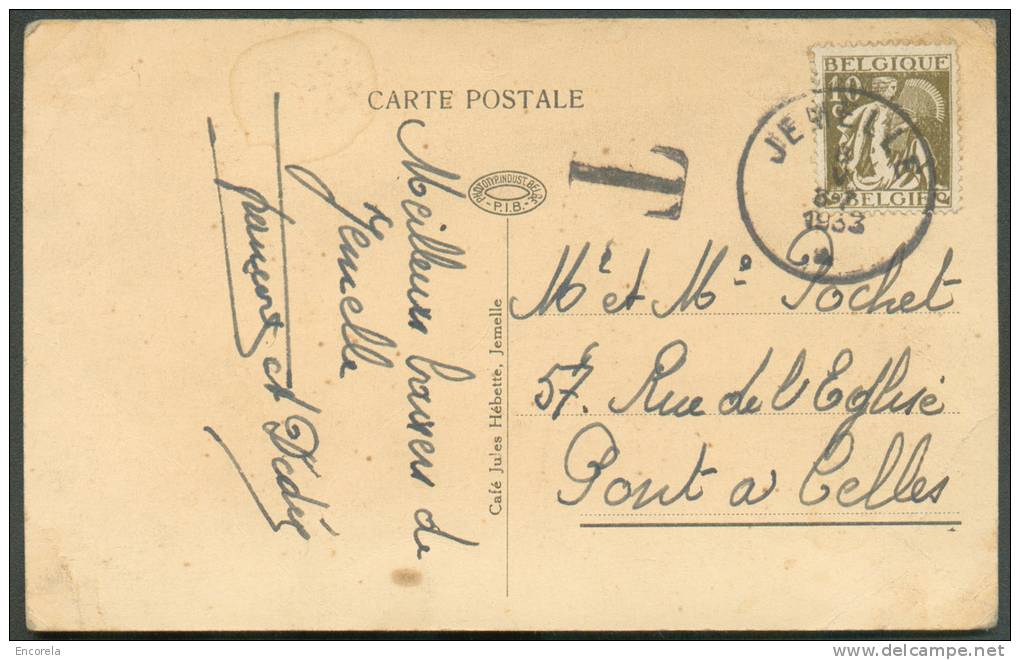 CARTE POSTALE
BELGIQUE
10
c
BELGIË
JEMELLE
1933
T
PHOTOTYP. INDUST. BELGE
- P.I.B. -
Café Jules Hébette, Jemelle
Meilleurs baisers de
Jemelle
et Dédé
Mr et Me Pochet
57. Rue de l'Eglise
Pont a Celles
Encorela
delcampe.net